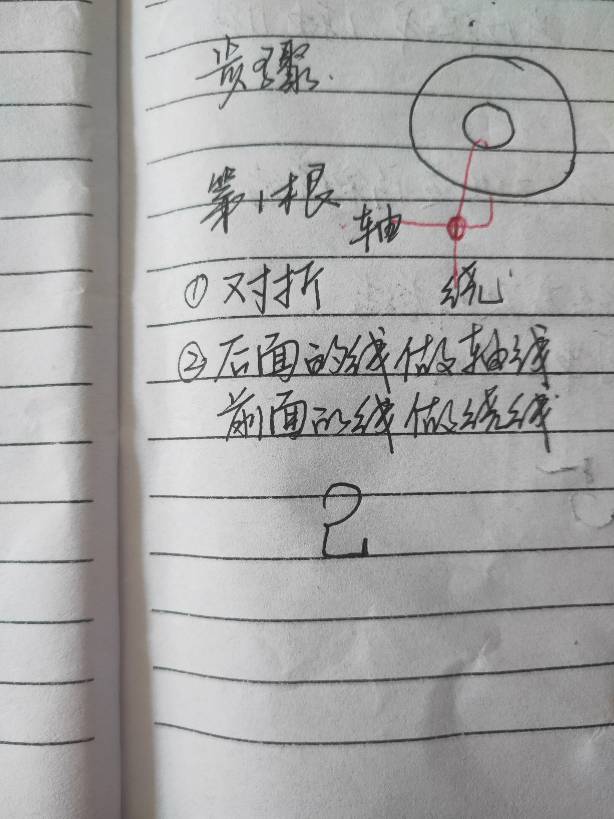 步骤.
第1根
轴
①对折
绕
②后面的线做轴线
前面的线做绕线
2